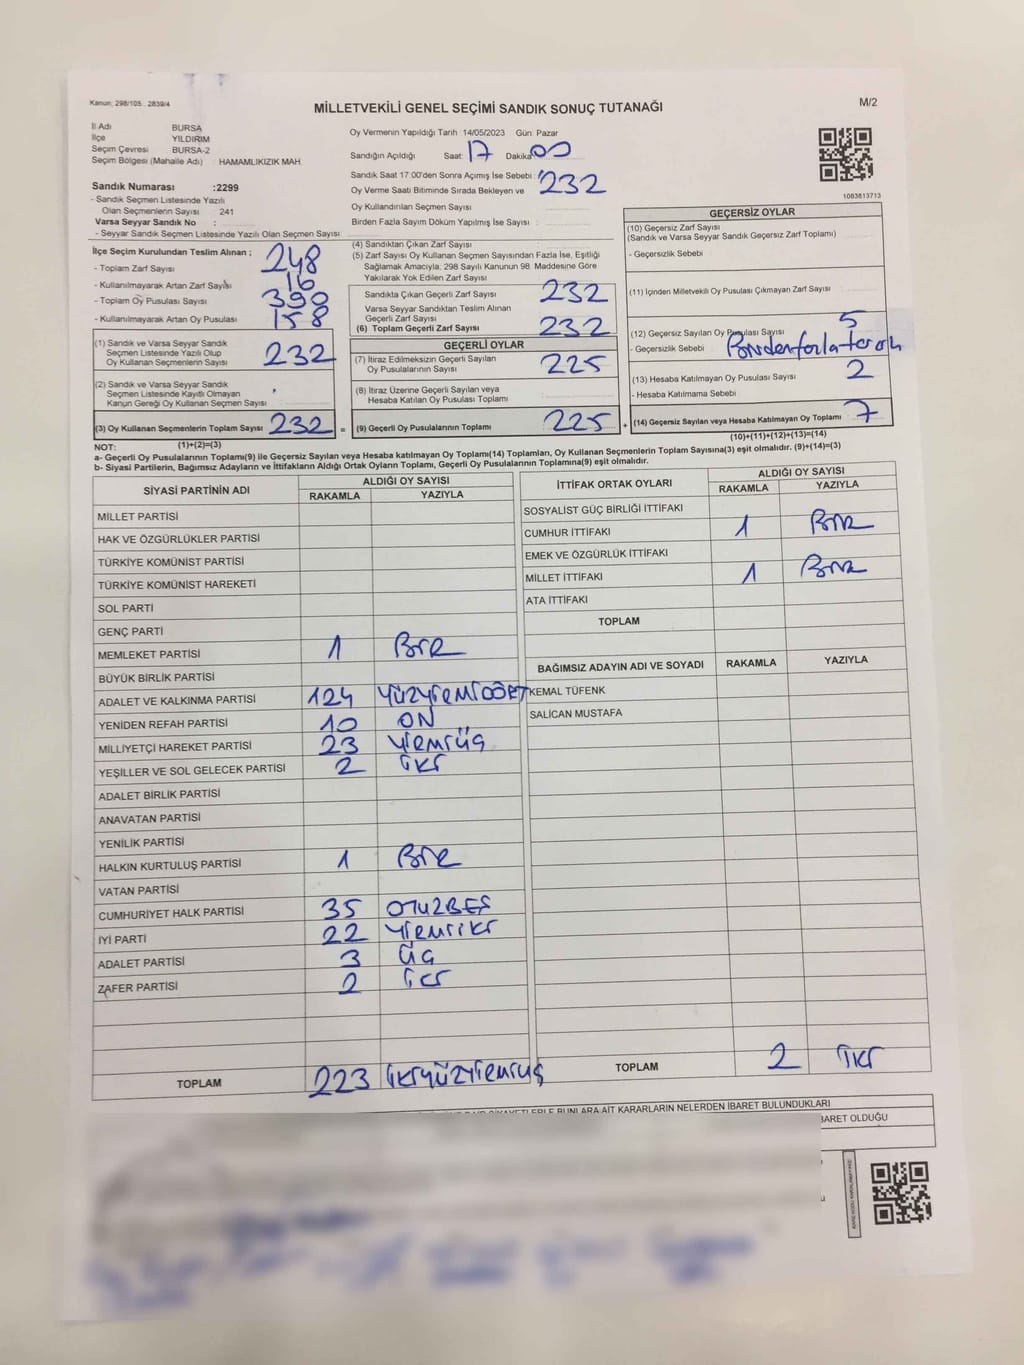 Kanun: 298/105 . 2839/4
MİLLETVEKİLİ GENEL SEÇİMİ SANDIK SONUÇ TUTANAĞI
M/2
İl Adı BURSA
İlçe YILDIRIM
Seçim Çevresi BURSA-2
Seçim Bölgesi (Mahalle Adı) : HAMAMLIKIZIK MAH.
Sandık Numarası :2299
- Sandık Seçmen Listesinde Yazılı
Olan Seçmenlerin Sayısı 241
Varsa Seyyar Sandık No :
- Seyyar Sandık Seçmen Listesinde Yazılı Olan Seçmen Sayısı:
Oy Vermenin Yapıldığı Tarih 14/05/2023 Gün Pazar
Sandığın Açıldığı Saat 17 Dakika 00
Sandık Saat 17:00'den Sonra Açımış İse Sebebi :
Oy Verme Saati Bitiminde Sırada Bekleyen ve 232
Oy Kullandırılan Seçmen Sayısı
Birden Fazla Sayım Döküm Yapılmış İse Sayısı :
1083813713
İlçe Seçim Kurulundan Teslim Alınan ;
- Toplam Zarf Sayısı 248
- Kullanılmayarak Artan Zarf Sayısı 16
- Toplam Oy Pusulası Sayısı 390
- Kullanılmayarak Artan Oy Pusulası 158
(1) Sandık ve Varsa Seyyar Sandık
Seçmen Listesinde Yazılı Olup
Oy Kullanan Seçmenlerin Sayısı 232
(2) Sandık ve Varsa Seyyar Sandık
Seçmen Listesinde Kayıtlı Olmayan
Kanun Gereği Oy Kullanan Seçmen Sayısı :
(3) Oy Kullanan Seçmenlerin Toplam Sayısı 232 =
(4) Sandıktan Çıkan Zarf Sayısı
(5) Zarf Sayısı Oy Kullanan Seçmen Sayısından Fazla İse, Eşitliği
Sağlamak Amacıyla; 298 Sayılı Kanunun 98. Maddesine Göre
Yakılarak Yok Edilen Zarf Sayısı
Sandıkta Çıkan Geçerli Zarf Sayısı 232
Varsa Seyyar Sandıktan Teslim Alınan
Geçerli Zarf Sayısı
(6) Toplam Geçerli Zarf Sayısı 232
GEÇERLİ OYLAR
(7) İtiraz Edilmeksizin Geçerli Sayılan
Oy Pusulalarının Sayısı 225
(8) İtiraz Üzerine Geçerli Sayılan veya
Hesaba Katılan Oy Pusulası Toplamı
(9) Geçerli Oy Pusulalarının Toplamı 225 +
GEÇERSİZ OYLAR
(10) Geçersiz Zarf Sayısı
(Sandık ve Varsa Seyyar Sandık Geçersiz Zarf Toplamı)
- Geçersizlik Sebebi
(11) İçinden Milletvekili Oy Pusulası Çıkmayan Zarf Sayısı
(12) Geçersiz Sayılan Oy Pusulası Sayısı 5
- Geçersizlik Sebebi Birden fazla tercih
(13) Hesaba Katılmayan Oy Pusulası Sayısı 2
- Hesaba Katılmama Sebebi
(14) Geçersiz Sayılan veya Hesaba Katılmayan Oy Toplamı 7
NOT: (1)+(2)=(3)
(10)+(11)+(12)+(13)=(14)
a- Geçerli Oy Pusulalarının Toplamı(9) ile Geçersiz Sayılan veya Hesaba katılmayan Oy Toplamı(14) Toplamları, Oy Kullanan Seçmenlerin Toplam Sayısına(3) eşit olmalıdır. (9)+(14)=(3)
b- Siyasi Partilerin, Bağımsız Adayların ve İttifakların Aldığı Ortak Oyların Toplamı, Geçerli Oy Pusulalarının Toplamına(9) eşit olmalıdır.
SİYASİ PARTİNİN ADI ALDIĞI OY SAYISI
RAKAMLA YAZIYLA
MİLLET PARTİSİ
HAK VE ÖZGÜRLÜKLER PARTİSİ
TÜRKİYE KOMÜNİST PARTİSİ
TÜRKİYE KOMÜNİST HAREKETİ
SOL PARTİ
GENÇ PARTİ
MEMLEKET PARTİSİ 1 BİR
BÜYÜK BİRLİK PARTİSİ
ADALET VE KALKINMA PARTİSİ 124 YÜZYİRMİDÖRT
YENİDEN REFAH PARTİSİ 10 ON
MİLLİYETÇİ HAREKET PARTİSİ 23 YİRMİÜÇ
YEŞİLLER VE SOL GELECEK PARTİSİ 2 İKİ
ADALET BİRLİK PARTİSİ
ANAVATAN PARTİSİ
YENİLİK PARTİSİ
HALKIN KURTULUŞ PARTİSİ 1 BİR
VATAN PARTİSİ
CUMHURİYET HALK PARTİSİ 35 OTUZBEŞ
İYİ PARTİ 22 YİRMİİKİ
ADALET PARTİSİ 3 ÜÇ
ZAFER PARTİSİ 2 İKİ
TOPLAM 223 İKİYÜZYİRMİÜÇ
İTTİFAK ORTAK OYLARI ALDIĞI OY SAYISI
RAKAMLA YAZIYLA
SOSYALİST GÜÇ BİRLİĞİ İTTİFAKI
CUMHUR İTTİFAKI 1 BİR
EMEK VE ÖZGÜRLÜK İTTİFAKI
MİLLET İTTİFAKI 1 BİR
ATA İTTİFAKI
TOPLAM
BAĞIMSIZ ADAYIN ADI VE SOYADI RAKAMLA YAZIYLA
KEMAL TÜFENK
SALİCAN MUSTAFA
TOPLAM 2 İKİ
BUNLARA AİT KARARLARIN NELERDEN İBARET BULUNDUKLARI
İBARET OLDUĞU